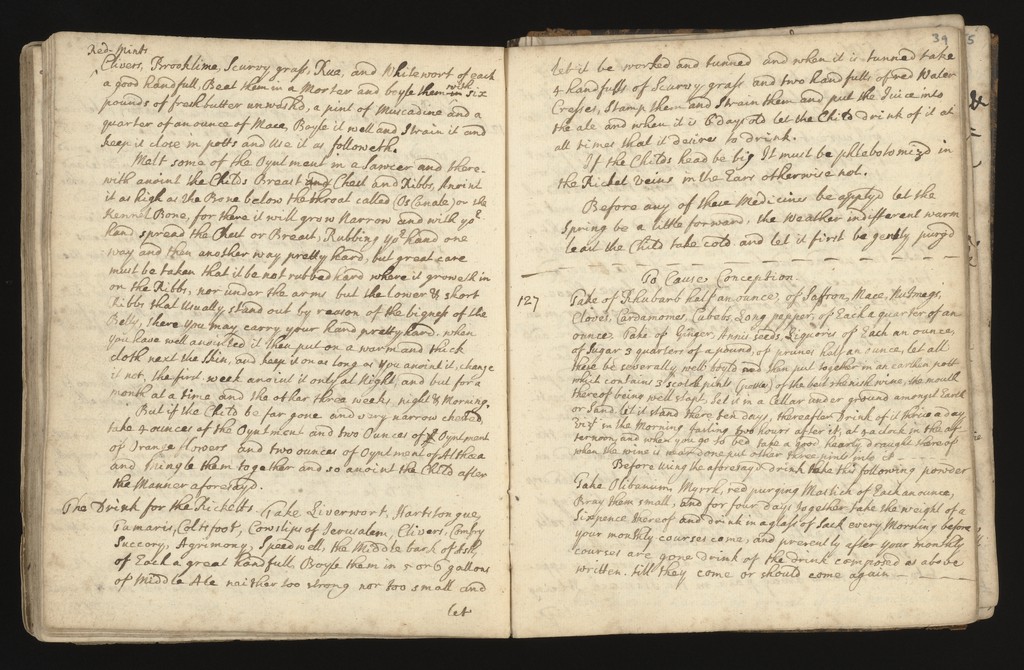 Red-Mints
Clivers, Brooklime, Scurvy grass, Rue, and Whitewort of each
a good handfull, Beat them in a Morter and boyle them with six
pounds of fresh butter unwashd, a pint of Muscadine and a
quarter of an ounce of Mace, Boyle it well and Strain it and
keep it close in potts and Use it as followeth.
Melt some of the Oyntment in a Sawcer and there-
with anoint the Childs Breast and Chest and Ribbs, Anoint
it as high as the Bone below the throat called (Os Canale) or the
Kennel Bone, for there it will grow Narrow and with yor
hand spread the Chest or Breast, Rubbing yor hand one
way and then another way pretty hard, but great care
must be taken that it be not rubbed hard where it groweth in
on the Ribbs, nor under the arms but the lower & short
Ribbs that Usually stand out by reason of the bigness of the
Belly, there you may carry your hand pretty hard, when
you have well anointed it then put on a warm and thick
cloth next the Skin, and keep it on as long as you anoint it, change
it not, the first week anoint it only at Night, and but for a
month at a time and the other three weeks, night & Morning.
But if the Child be far gone and very narrow chested,
take 4 ounces of the Oyntment and two Ounces of Oyntment
of Orange flowers and two ounces of Oyntment of Althea
and Mingle them together and so anoint the Child after
the Manner aforesayd.
The Drink for the Ricketts Take Liverwort, Hartstongue,
Tamaris, Coltsfoot, Cowslips of Jerusalem, Clivers, Comfry
Succory, Agrimony, Speedwell, the Middle bark of Ash,
of Each a great handfull, Boyle them in 5 or 6 gallons
of Middle Ale neither too strong nor too small and
let
39
5
let it be worked and tunned and when it is tunned take
4 handfulls of Scurvy grass and two handfulls of red Water
Cresses, Stamp them and Strain them and put the Juice into
the ale and when it is 6 Days old let the Child drink of it at
all times that it desires to drink.
If the Childs head be big It must be phlebotomizd in
the Ricket Veins in the Ears otherwise not.
Before any of these Medicines be applyd let the
Spring be a little forward, the Weather indifferent warm
least the Child take cold and let it first be gently purg'd
To Cause Conception.
127 Take of Rhubarb half an ounce, of Saffron, Mace, Nutmegs,
Cloves, Cardamomes, Cubebs, Long pepper, of Each a quarter of an
ounce. Take of Ginger, Annis seeds, Liquoris of Each an ounce,
of Sugar 3 quarters of a pound, of prunes half an ounce, let all
these be severally well boyld and then put together in an earthen pott
which contains 3 scotch pints of the best rhenish wine, the mouth
thereof being well stopt, Set it in a Cellar under ground amongst Earth
or Sand let it stand there ten days, thereafter Drink of it thrice a day
vizt in the Morning fasting two hours after it, at 4 a clock in the aff-
ternoon, and when you go to bed take a good hearty draught thereof
when the wine is near done put other three pints into it
Before using the aforesayd drink take this following powder
Take Olibanum, Myrrh, red purging Mastick of Each an ounce,
Bray them small, and for four days together take the weight of a
Sixpence thereof and drink in a glass of Sack every Morning before
your monthly courses come, and presently after your monthly
courses are gone drink of the drink composed as above
written. till they come or should come again